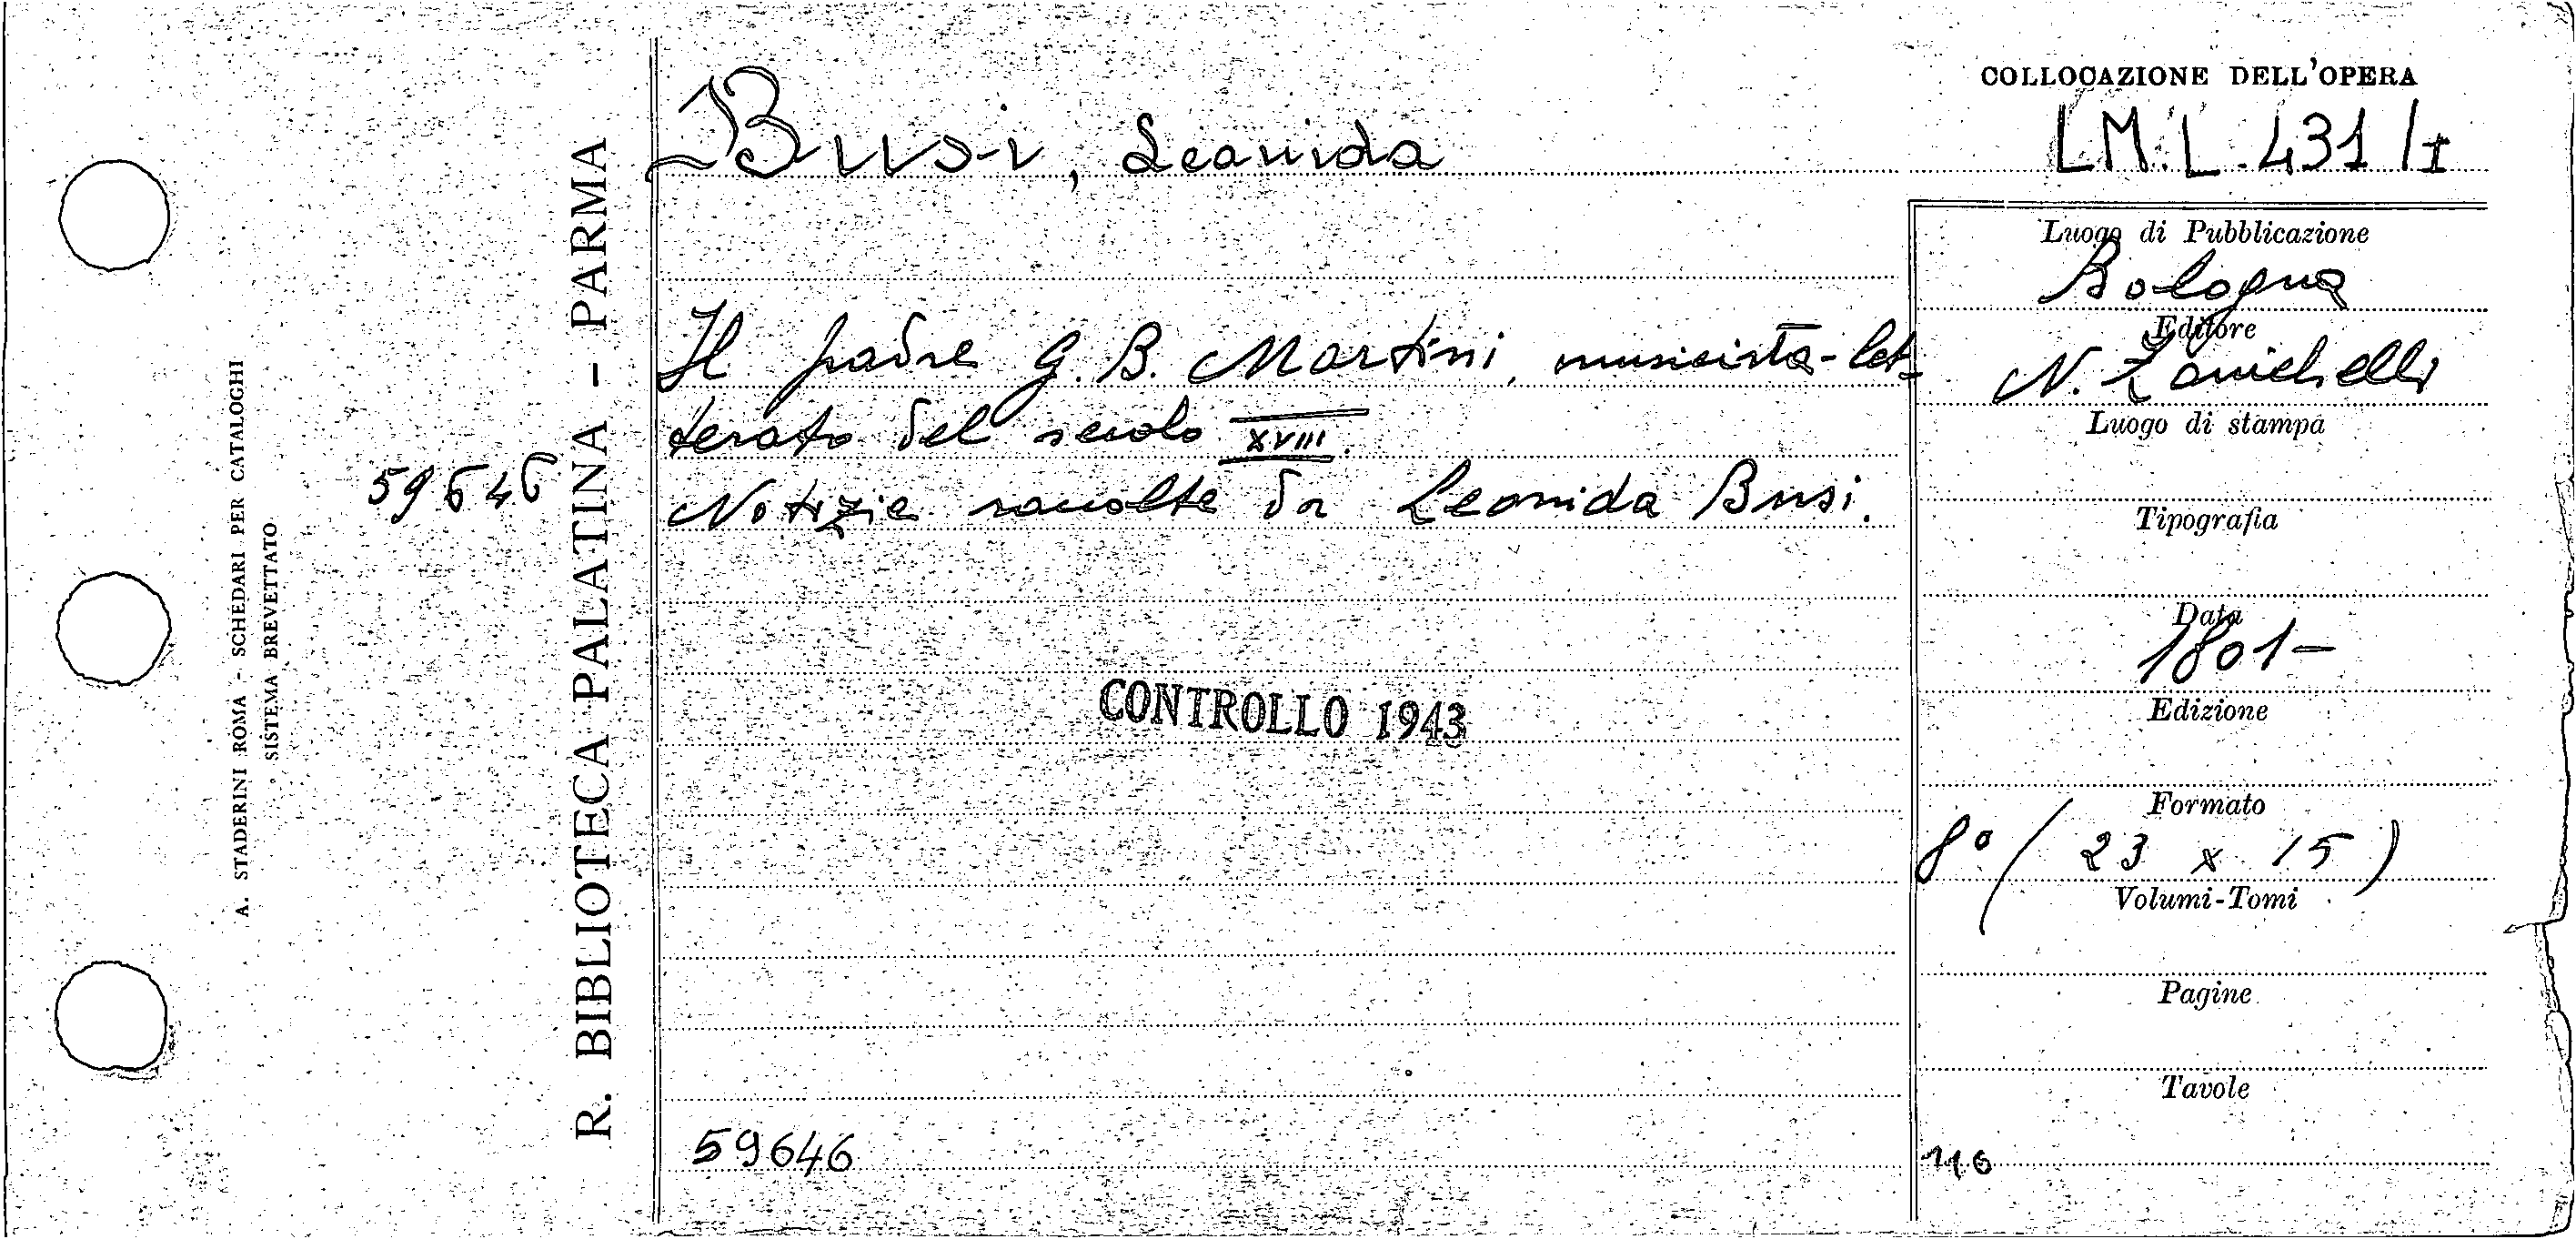 COLLOCAZIONE DELL'OPERA
Busi, Leonida
LM.L.431/I
Luogo di Pubblicazione
Bologna
Il padre G. B. Martini, musicista-let-
terato del secolo XVIII.
Notizie raccolte da Leonida Busi.
Editore
N. Zanichelli
Luogo di stampa
Tipografia
Data
1801-
Edizione
Formato
8° (23 x 15)
Volumi-Tomi
Pagine
Tavole
CONTROLLO 1943
59646
116
R. BIBLIOTECA PALATINA - PARMA
59646
A. STADERINI ROMA - SCHEDARI PER CATALOGHI
SISTEMA BREVETTATO